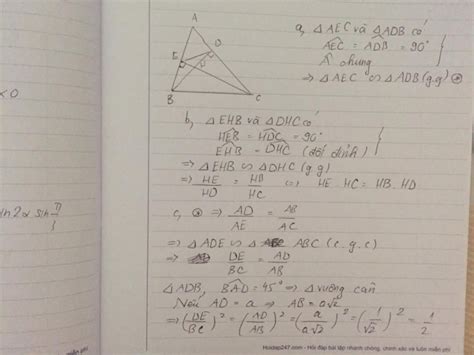 A
E
D
H
B
C
a, △AEC và △ADB có
∠AEC = ∠ADB = 90°
Â chung
⇒ △AEC ∽ △ADB (g.g) ⊛
b, △EHB và △DHC có
∠HEB = ∠HDC = 90°
∠EHB = ∠DHC (đối đỉnh)
⇒ △EHB ∽ △DHC (g.g)
⇒ HE/HD = HB/HC ⇔ HE.HC = HB.HD
c, ⊛ ⇒ AD/AE = AB/AC
⇒ △ADE ∽ △ABC (c.g.c)
⇒ DE/BC = AD/AB
△ADB, ∠BAD = 45° ⇒ △ vuông cân
Nếu AD = a ⇒ AB = a√2
⇒ (DE/BC)² = (AD/AB)² = (a/a√2)² = (1/√2)² = 1/2
< 0
in 2α sin
Hoidap247.com - Hỏi đáp bài tập nhanh chóng, chính xác và luôn miễn phí
miễn phí